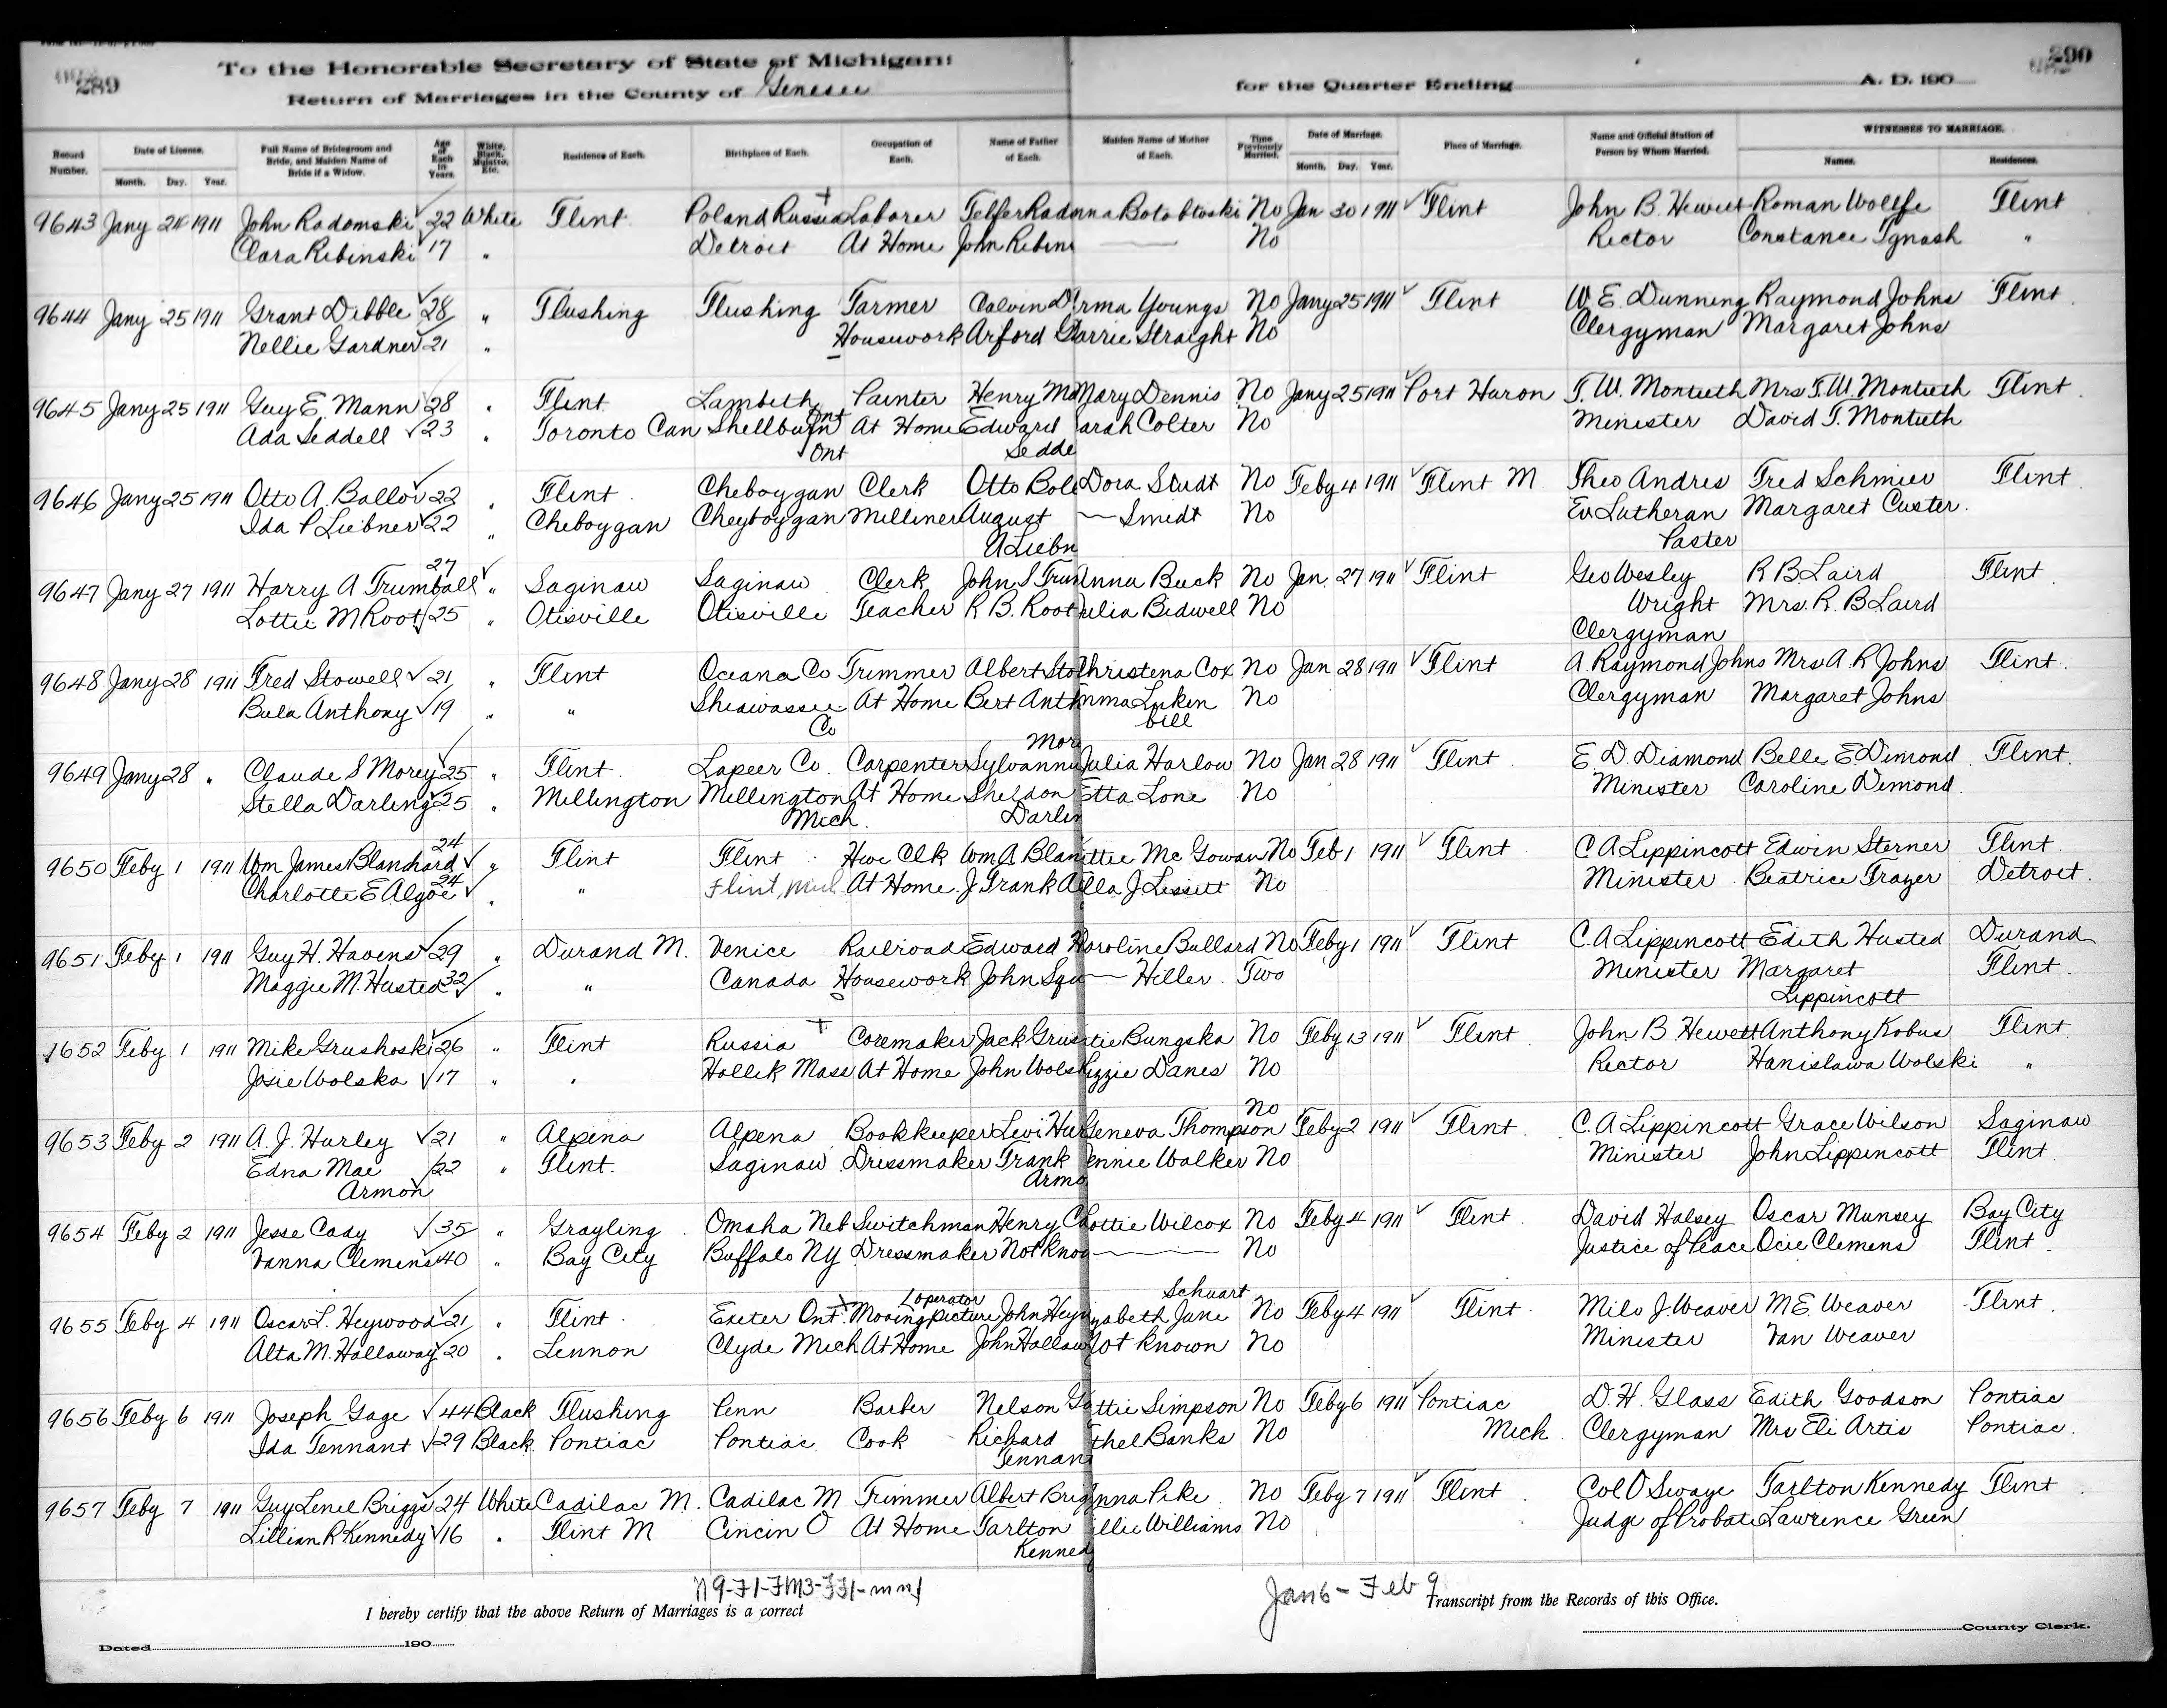 289
To the Honorable Secretary of State of Michigan:
Return of Marriages in the County of Genesee
for the Quarter Ending A. D. 190
290
Record Number. Date of License. Month. Day. Year. Full Name of Bridegroom and Bride, and Maiden Name of Bride if a Widow. Age of Each in Years. White, Black, Mulatto, Etc. Residence of Each. Birthplace of Each. Occupation of Each. Name of Father of Each. Maiden Name of Mother of Each. Time Previously Married. Date of Marriage. Month. Day. Year. Place of Marriage. Name and Official Station of Person by Whom Married. WITNESSES TO MARRIAGE. Names. Residences.
9643 Jany 24 1911 John Radomski 22 White Flint Poland Russia Laborer Telfer Rado nna Botobtoski No Jan 30 1911 Flint John B. Hewett Roman Wollfe Flint
Clara Ribinski 17 " Detroit At Home John Ribins — No Rector Constance Ignash "
9644 Jany 25 1911 Grant Dibble 28 " Flushing Flushing Farmer Calvin D rma Youngs No Jany 25 1911 Flint W. E. Dunning Raymond Johns Flint
Nellie Gardner 21 " Housework Arford G arrie Straight No Clergyman Margaret Johns
9645 Jany 25 1911 Guy E. Mann 28 " Flint Lambeth Ont Painter Henry Ma Mary Dennis No Jany 25 1911 Port Huron T. W. Montieth Mrs T. W. Montieth Flint
Ada Seddell 23 " Toronto Can Shellburn Ont At Home Edward Sedde arah Colter No Minister David T. Montieth
9646 Jany 25 1911 Otto A. Ballor 22 " Flint Cheboygan Clerk Otto Bole Dora Studt No Feby 4 1911 Flint M Theo Andres Fred Schmier Flint
Ida P Liebner 22 " Cheboygan Cheyboygan Milliner August A Liebn — Smidt No Ev Lutheran Paster Margaret Custer
9647 Jany 27 1911 Harry A Trumball 27 " Saginaw Saginaw Clerk John S Trum Anna Buck No Jan. 27 1911 Flint Geo Wesley Wright R B Laird Flint
Lottie M Root 25 " Otisville Otisville Teacher R B. Root Julia Bidwell No Clergyman Mrs. R. B Laird
9648 Jany 28 1911 Fred Stowell 21 " Flint Oceana Co Trimmer Albert Sto Christena Cox No Jan 28 1911 Flint A. Raymond Johns Mrs A. R Johns Flint
Bula Anthony 19 " " Shiawassee Co At Home Bert Anth mma Lukenbill No Clergyman Margaret Johns
9649 Jany 28 " Claude S Morey 25 " Flint Lapeer Co. Carpenter Sylvannu More Julia Harlow No Jan 28 1911 Flint E. D. Diamond Belle E. Dimond Flint
Stella Darling 25 " Millington Millington Mich. At Home Sheldon Darlin Etta Lone No Minister Caroline Dimond
9650 Feby 1 1911 Wm James Blanchard 24 " Flint Flint Hwe Clk Wm A Blan ttie Mc Gowan No Feb 1 1911 Flint C A Lippincott Edwin Sterner Flint
Charlotte E Algoe 24 " " Flint, Mich At Home J Frank A lla J. Lissett No Minister Beatrice Frazer Detroit
9651 Feby 1 1911 Guy H. Havens 29 " Durand M. Venice Railroad Edward H aroline Bullard No Feby 1 1911 Flint C. A Lippincott Edith Husted Durand
Maggie M. Husted 32 " " Canada Housework John Squ — Hiller Two Minister Margaret Lippincott Flint
1652 Feby 1 1911 Mike Grushoski 26 " Flint Russia Coremaker Jack Grus tie Bungska No Feby 13 1911 Flint John B Hewett Anthony Kobus Flint
Josie Wolska 17 " " Hollik Mass At Home John Wols izzie Danes No Rector Hanislawa Wolski "
9653 Feby 2 1911 A. J. Hurley 21 " Alpena Alpena Bookkeeper Levi Hur Geneva Thompson No Feby 2 1911 Flint C. A Lippincott Grace Wilson Saginaw
Edna Mae Armon 22 " Flint Saginaw Dressmaker Frank Armo ennie Walker No Minister John Lippincott Flint
9654 Feby 2 1911 Jesse Cady 35 " Grayling Omaha Neb Switchman Henry C Lottie Wilcox No Feby 4 1911 Flint David Halsey Oscar Munsey Bay City
Vanna Clemens 40 " Bay City Buffalo NY Dressmaker Not Know — No Justice of Peace Ocie Clemens Flint
9655 Feby 4 1911 Oscar L. Heywood 21 " Flint Exeter Ont. Moving Picture operator John Heyw zabeth Jane Schuart No Feby 4 1911 Flint Milo J. Weaver M E. Weaver Flint
Alta M. Hallaway 20 " Lennon Clyde Mich At Home John Hallaw Not Known No Minister Van Weaver
9656 Feby 6 1911 Joseph Gage 44 Black Flushing Penn Barber Nelson Ga ttie Simpson No Feby 6 1911 Pontiac Mich D. H. Glass Edith Goodson Pontiac
Ida Tennant 29 Black Pontiac Pontiac Cook Richard Tennan thel Banks No Clergyman Mrs Eli Artis Pontiac
9657 Feby 7 1911 Guy Lenel Briggs 24 White Cadilac M. Cadilac M Trimmer Albert Brig nna Pike No Feby 7 1911 Flint Col O Swaye Tarlton Kennedy Flint
Lillian R Kennedy 16 " Flint M Cincin O At Home Tarlton Kenned illie Williams No Judge of Probate Lawrence Green
Jan 6 - Feb 9
I hereby certify that the above Return of Marriages is a correct Transcript from the Records of this Office.
Dated 190 County Clerk.